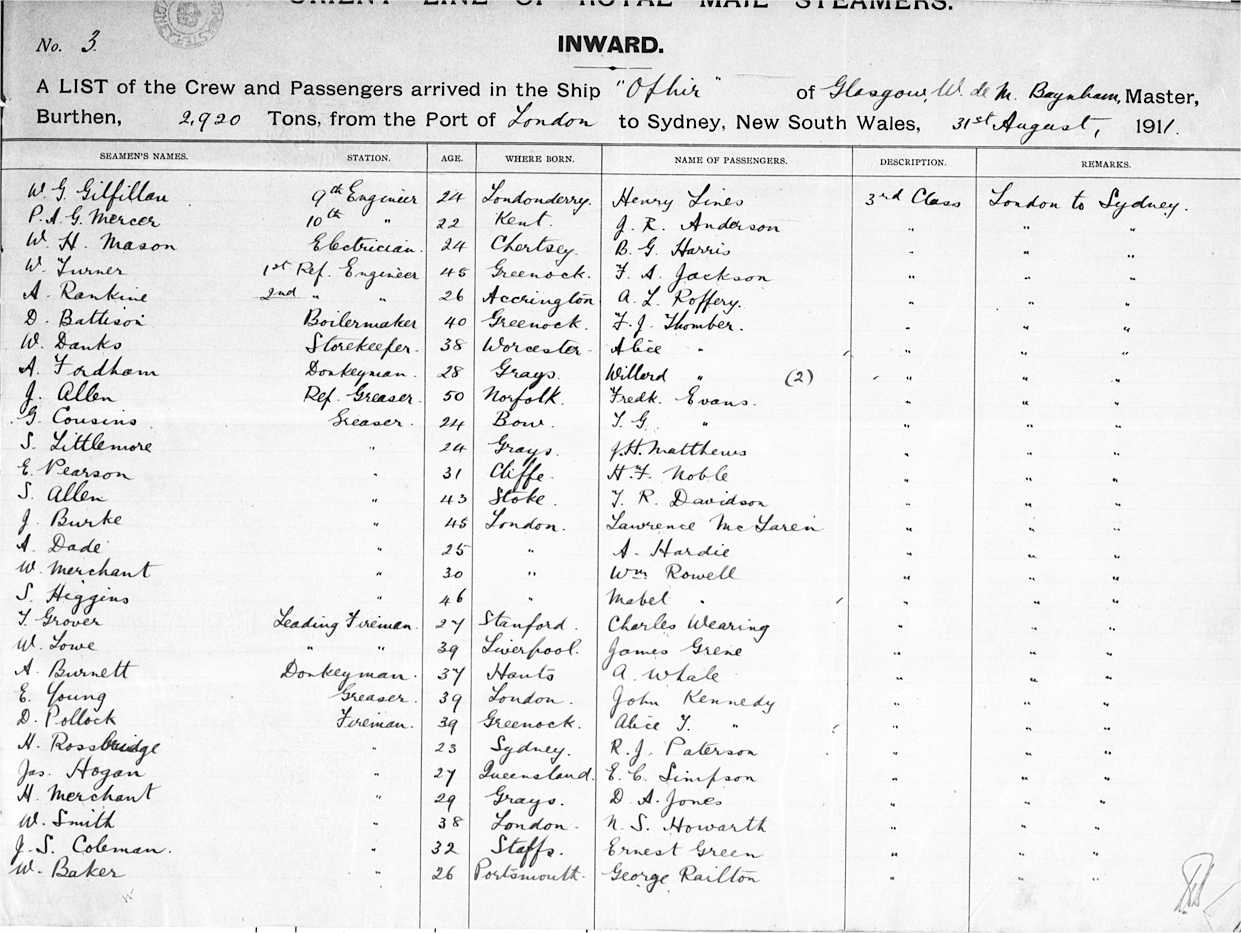 ORIENT LINE OF ROYAL MAIL STEAMERS.
No. 3.
INWARD.
A LIST of the Crew and Passengers arrived in the Ship "Ophir" of Glasgow, W. de M. Baynham, Master,
Burthen, 2,920 Tons, from the Port of London to Sydney, New South Wales, 31st August, 1911.
SEAMEN'S NAMES. STATION. AGE. WHERE BORN. NAME OF PASSENGERS. DESCRIPTION. REMARKS.
W. G. Gilfillan 9th Engineer 24 Londonderry. Henry Lines 3rd Class London to Sydney.
P. A. G. Mercer 10th " 22 Kent. J. R. Anderson " " "
W. H. Mason Electrician. 24 Chertsey. B. G. Harris " " "
W. Turner 1st Ref. Engineer 45 Greenock. F. A. Jackson " " "
A. Rankine 2nd " " 26 Accrington A. L. Roffery. " " "
D. Battison Boilermaker 40 Greenock. F. J. Thomber. " " "
W. Danks Storekeeper. 38 Worcester. Alice " " " "
A. Fordham Donkeyman. 28 Grays. Willard " (2) " " "
J. Allen Ref. Greaser. 50 Norfolk. Fredk. Evans. " " "
G. Cousins. Greaser. 24 Bow. T. G. " " " "
S. Littlemore " 24 Grays. J. H. Matthews " " "
E. Pearson " 31 Cliffe. H. F. Noble " " "
S. Allen " 43 Stoke. T. R. Davidson " " "
J. Burke " 45 London. Lawrence McLaren " " "
A. Dade " 25 " A. Hardie " " "
W. Merchant " 30 " Wm Rowell " " "
S. Higgins " 46 " Mabel " " " "
T. Grover Leading Fireman. 27 Stanford. Charles Wearing " " "
W. Lowe " " 39 Liverpool. James Grene " " "
A. Burnett Donkeyman. 37 Hants A. Whale " " "
E. Young Greaser. 39 London. John Kennedy " " "
D. Pollock Fireman. 39 Greenock. Alice T. " " " "
H. Rossbridge " 23 Sydney. R. J. Paterson " " "
Jas. Hogan " 27 Queensland. E. C. Simpson " " "
H. Merchant " 29 Grays. D. A. Jones " " "
W. Smith " 38 London. N. S. Howarth " " "
J. S. Coleman. " 32 Staffs. Ernest Green " " "
W. Baker " 26 Portsmouth. George Railton " " "